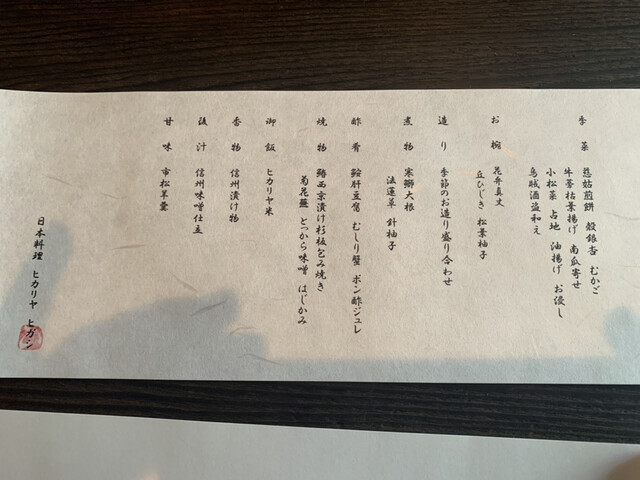 季菜 慈姑煎餅 殻銀杏 むかご
牛蒡枯葉揚げ 南瓜寄せ
小松菜 占地 油揚げ お浸し
烏賊酒盗和え
お椀 花弁真丈
丘ひじき 松葉柚子
造り 季節のお造り盛り合わせ
煮物 寒鰤大根
法蓮草 針柚子
酢肴 鮟肝豆腐 むしり蟹 ポン酢ジュレ
焼物 鰆西京漬け杉板包み焼き
菊花蕪 とっから味噌 はじかみ
御飯 ヒカリヤ米
香物 信州漬け物
後汁 信州味噌仕立
甘味 市松羊羹
日本料理 ヒカリヤ ヒガシ